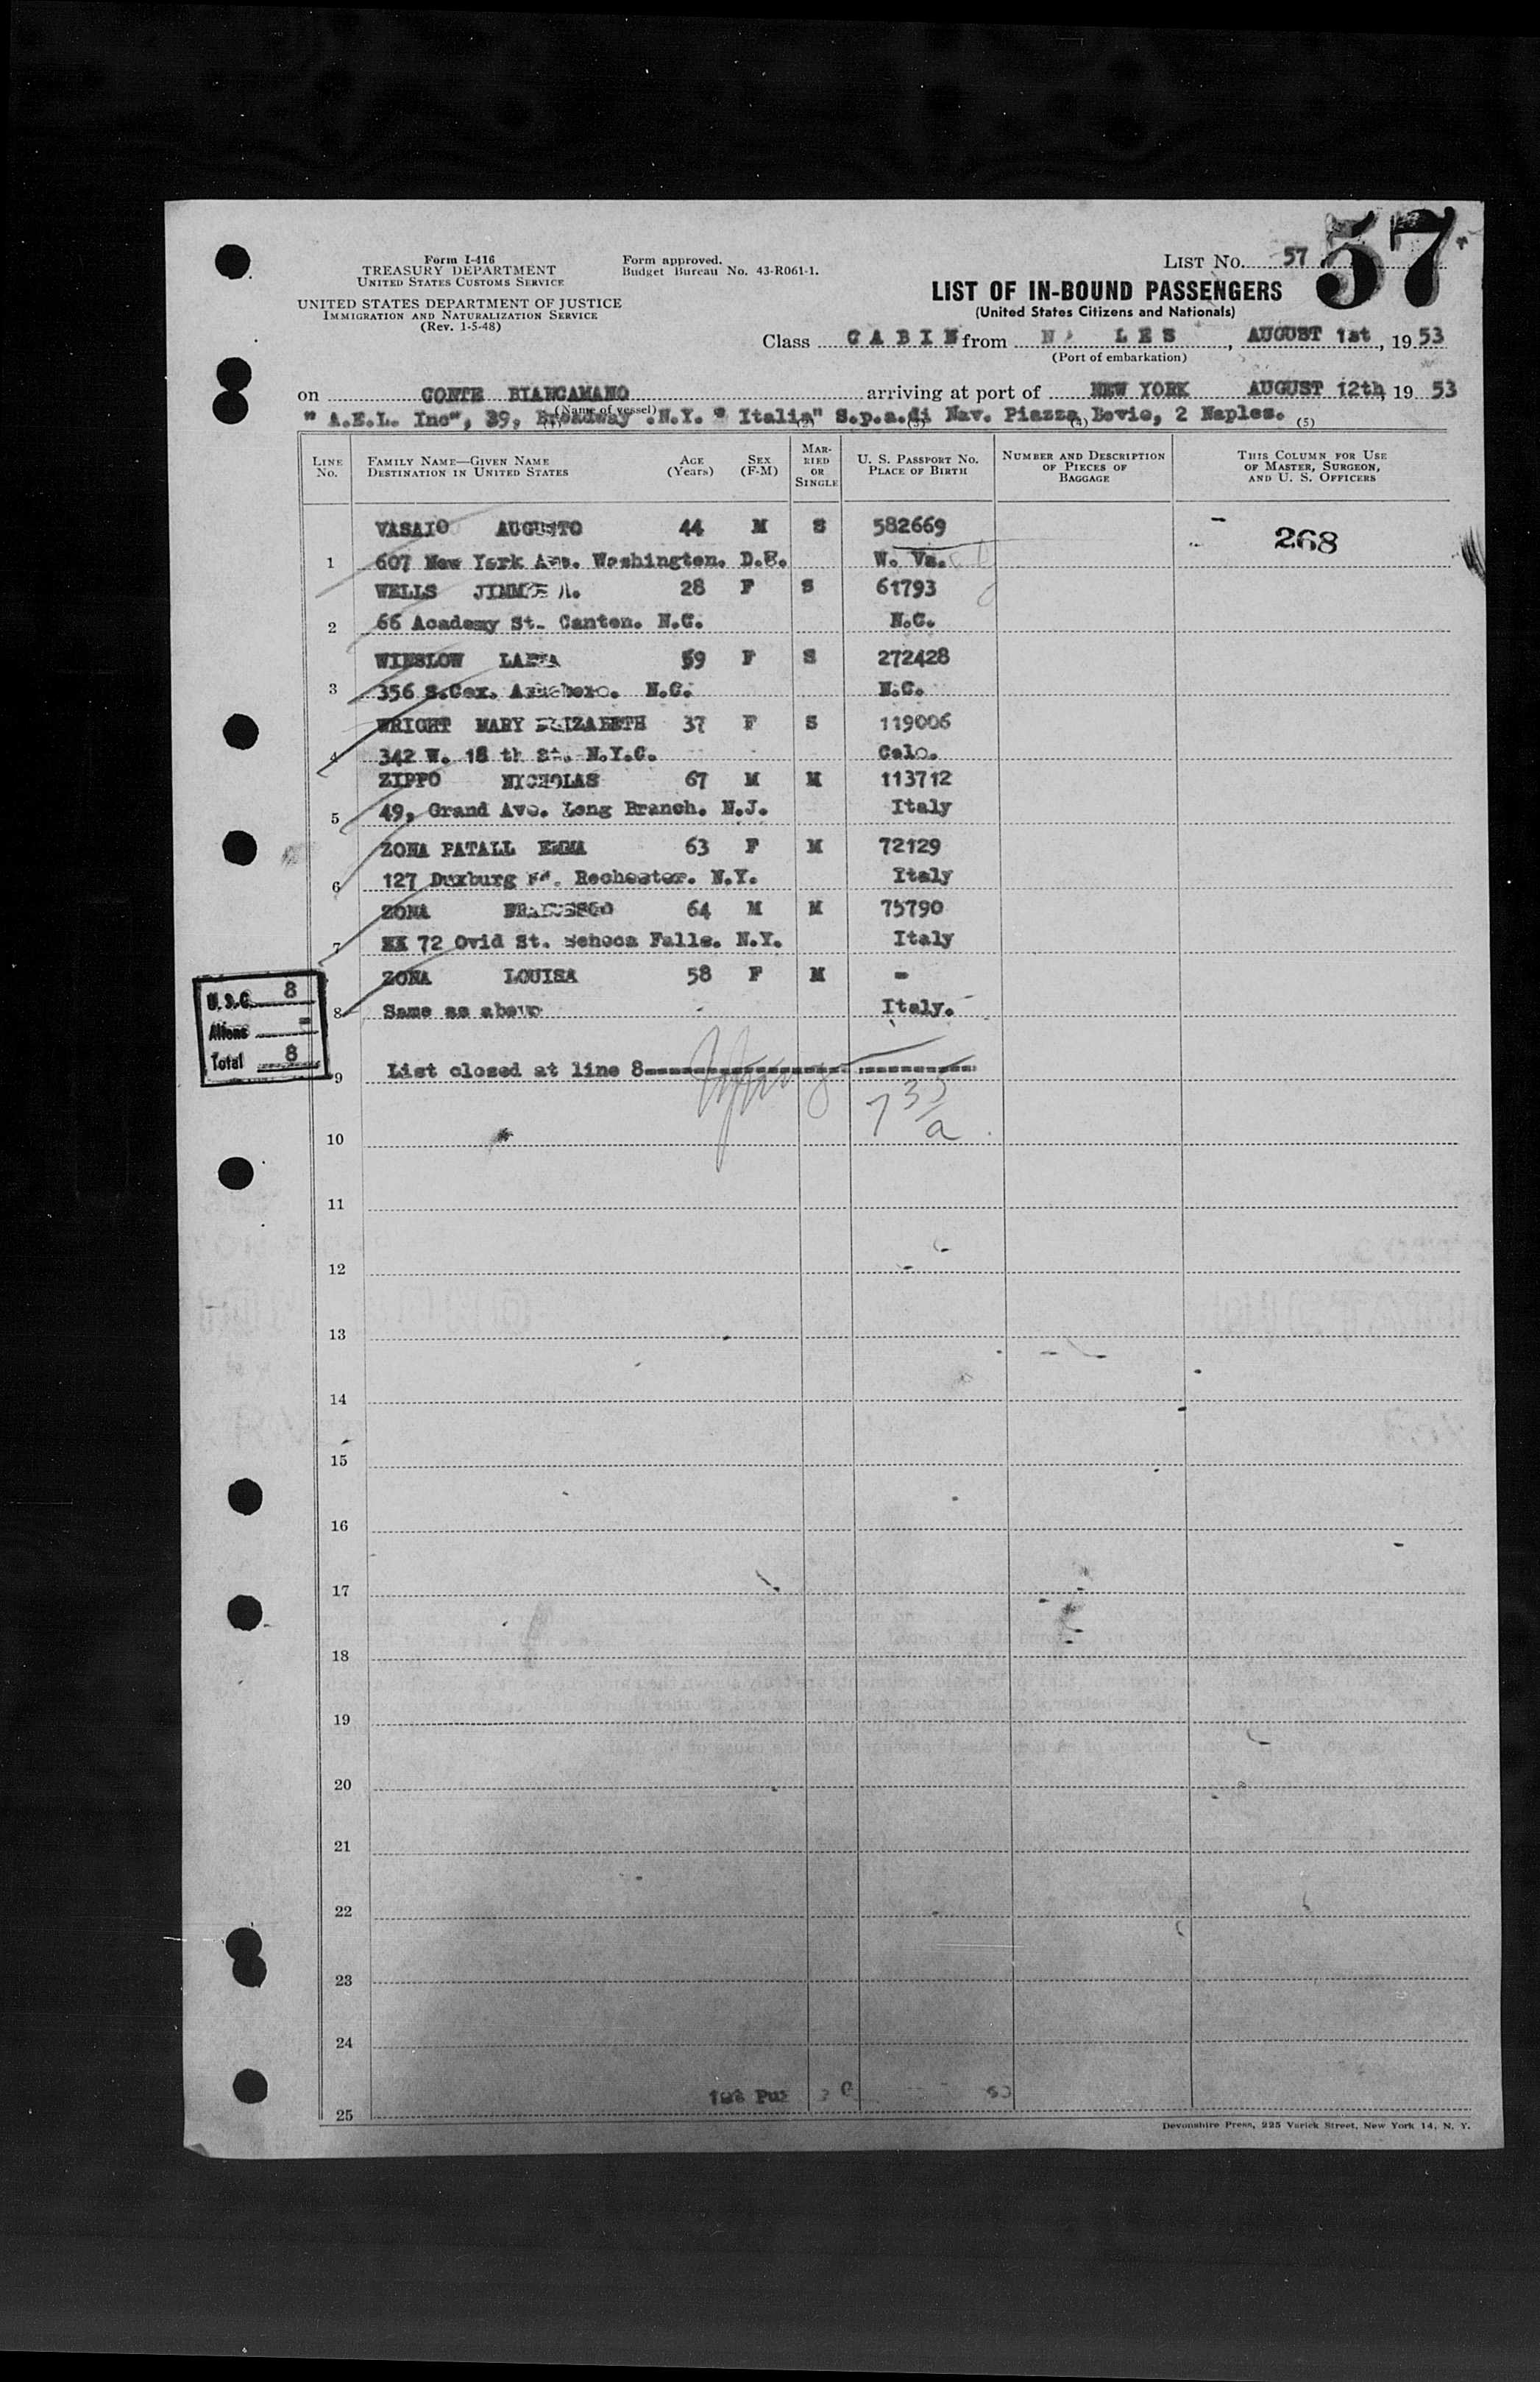 Form I-416
TREASURY DEPARTMENT
UNITED STATES CUSTOMS SERVICE
UNITED STATES DEPARTMENT OF JUSTICE
IMMIGRATION AND NATURALIZATION SERVICE
(Rev. 1-5-48)
Form approved.
Budget Bureau No. 43-R061-1.
LIST No. 57
57
LIST OF IN-BOUND PASSENGERS
(United States Citizens and Nationals)
Class CABIN from N LES, AUGUST 1st, 19 53
(Port of embarkation)
on CONTE BIANCAMANO arriving at port of NEW YORK AUGUST 12th 19 53
(Name of vessel)
" A.E.L. Inc", 39, Broadway .N.Y. " Italia" S.p.a.di Nav. Piazza Bovio, 2 Naples.
(1) (2) (3) (4) (5)
LINE No. FAMILY NAME—GIVEN NAME DESTINATION IN UNITED STATES AGE (Years) SEX (F-M) MARRIED OR SINGLE U. S. PASSPORT No. PLACE OF BIRTH NUMBER AND DESCRIPTION OF PIECES OF BAGGAGE THIS COLUMN FOR USE OF MASTER, SURGEON, AND U. S. OFFICERS
VASAIO AUGUSTO 44 M S 582669 268
1 607 New York Ave. Washington. D.C. W. Va.
WELLS JIMMIE A. 28 F S 61793
2 66 Academy St. Canton. N.C. N.C.
WINSLOW 59 F S 272428
3 356 S.Cox. N.C. N.C.
WRIGHT MARY ELIZABETH 37 F S 119006
4 342 W. 18 th St. N.Y.C. Colo.
ZIPPO NICHOLAS 67 M M 113712
5 49, Grand Ave. Long Branch. N.J. Italy
ZONA PATALL EMMA 63 F M 72129
6 127 Duxburg Rd. Rochester. N.Y. Italy
ZONA FRANCESCO 64 M M 75790
7 72 Ovid St. Seneca Falls. N.Y. Italy
ZONA LOUISA 58 F M -
8 Same as above Italy.
U.S.C. 8
Aliens -
Total 8
9 List closed at line 8
7 35/a
10
11
12
13
14
15
16
17
18
19
20
21
22
23
24
25
Devonshire Press, 225 Varick Street, New York 14, N. Y.